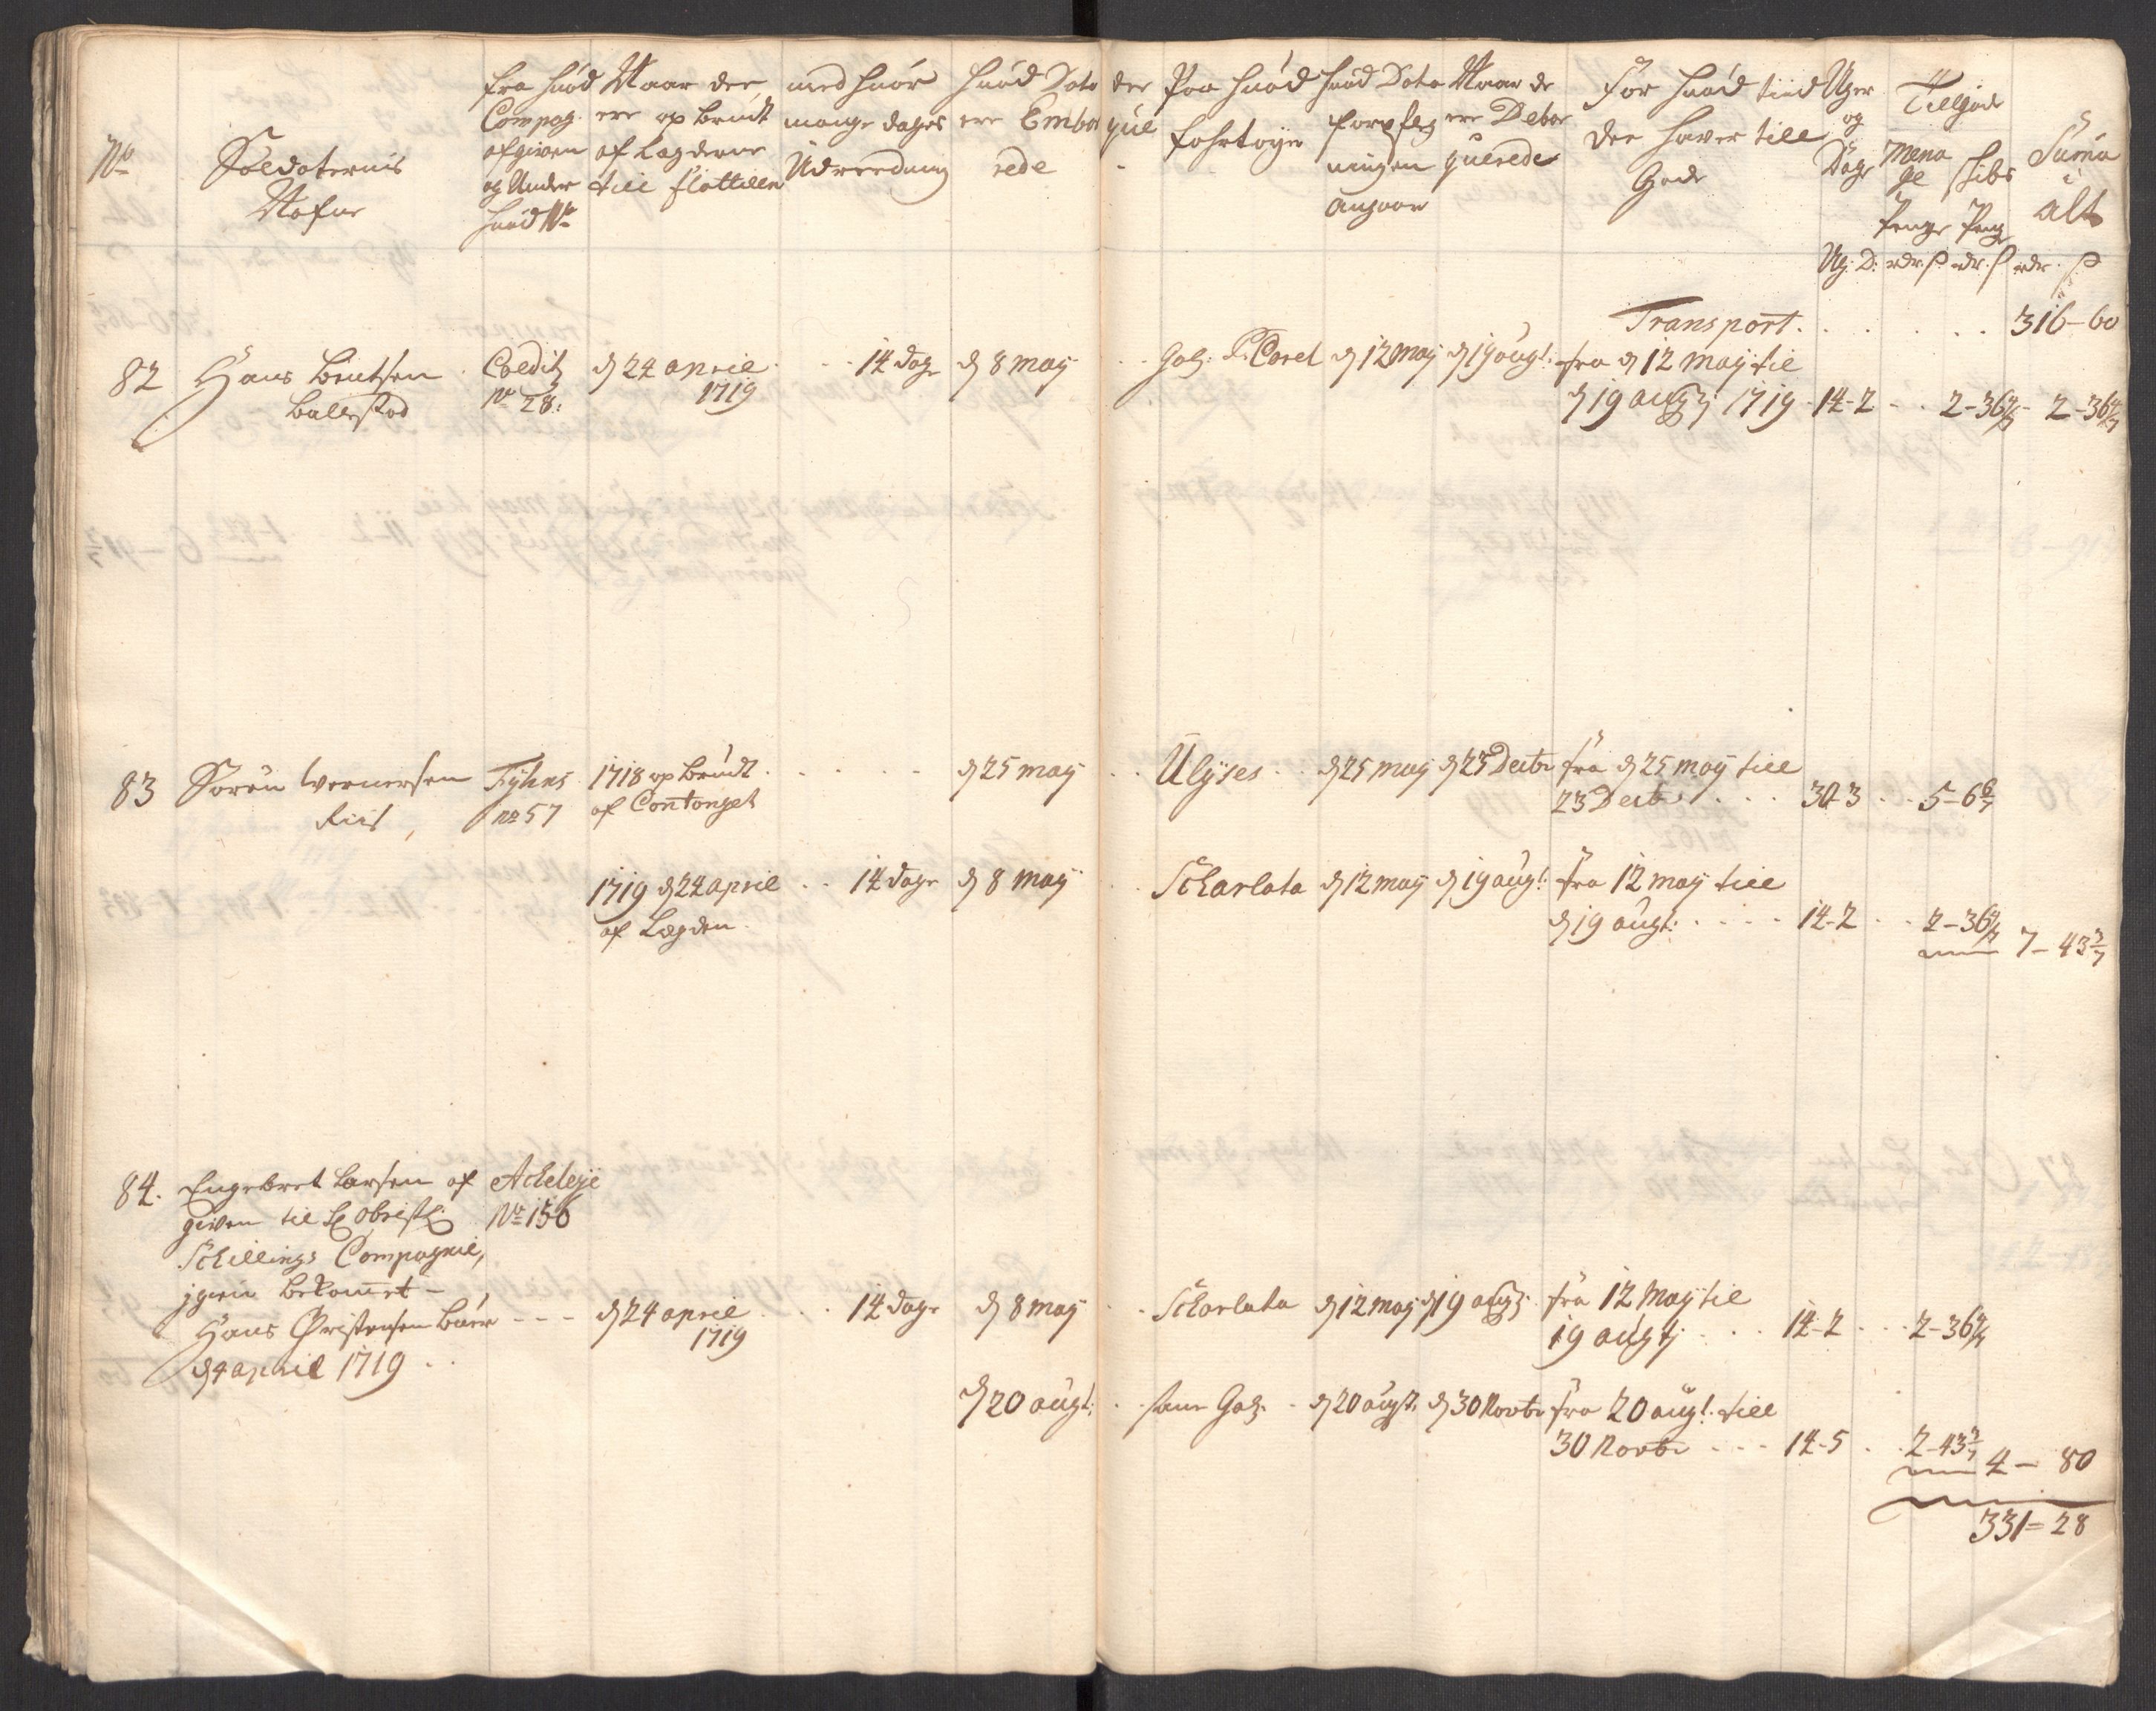 No
Soldaternis
Nafne
fra huad
Compag.
afgiven
og Under
huad No
Naar der
ere op brudt
af Lægderne
till flottillen
med huor
mange dages
Udreedning
huad Dato der
ere Embar que
rede -
Paa huad
fahrtøyer
huad Dato
forpfleg
ningen
angaar
Naar de
ere Debar
querede
For huad tiid
der haver till
Gode
Uger
og
Dage
Tillgode
Mena
ge
Penge
skibs
Penge
Suma
i
alt
Ug: D: rdr. ß rdr. ß rdr. ß
Transport . . . . . . 316-60
82 Hans Bentsen
Ballestad
Coeditz
No 28:
d 24 aprill
1719
14 dage d 8 may
Galj: P: Carel d 12 may d 19 augt: fra d 12 may til
d 19 augtj 1719 - 14-2 - - 2-36 4/7 - 2-36 4/7
83 Sorën Wernersen
Riis,
Tyhns
no 57
1718 op brudt
af Contonget
d 25 may
Ulyses d 25 may d 23 Decbr fra d 25 may till
23 Decbr . . . 30-3 . . 5-6 6/7
1719 d 24 april
af Lægden
14 dage d 8 may
Scharlata d 12 may d 19 augt: fra 12 may till
d 19 augt: . . . . 14-2 . . 2-36 4/7
7-43 3/7
84. Engebret Larsen af
given til Obrist
Schillings Compagnie,
igien bekomet -
Hans Christensen Buer - - -
d 4 april 1719 . .
Acheleye
No 156
d 24 april
1719
14 dage d 8 may
Scharlata d 12 may d 19 augtj fra 12 May til
19 augtj . . . 14-2 . . 2-36 4/7
d 20 augt: . . samme Galj. - d 20 augt. d 30 Novbr fra 20 augt. till
30 Novbr - - - 14-5 . . 2-43 3/7
4 - 80
331=28